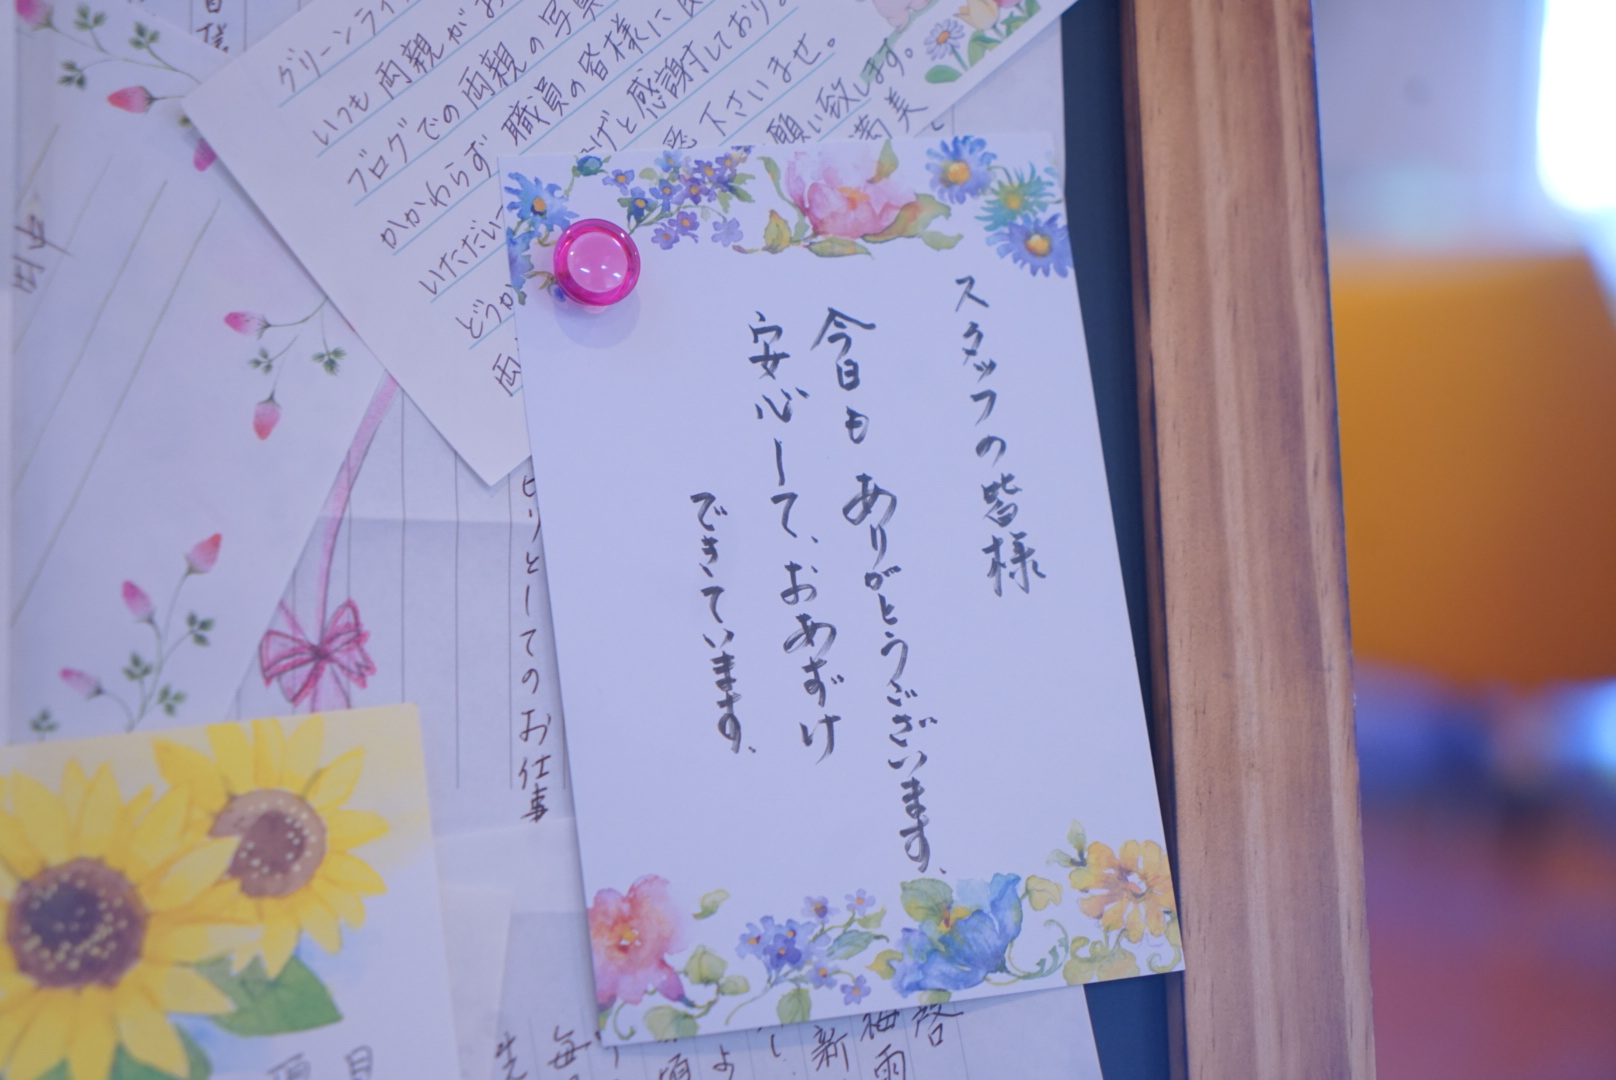 スタッフの皆様
今日も ありがとうございます。
安心して、おあずけ
できています。
グリーンライ
いつも両親がお
ブログでの両親の写真
かかわらず 職員の皆様に
いただい
げと感謝しており
どうか
下さいませ。
両
願い致します。
美
とりとしてのお仕事
田中
様
毎
頃
よ
新
梅雨